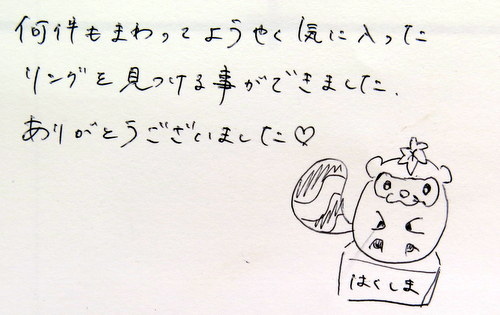 何件もまわってようやく気に入った
リングを見つける事ができました.
ありがとうございました♡
はくしま